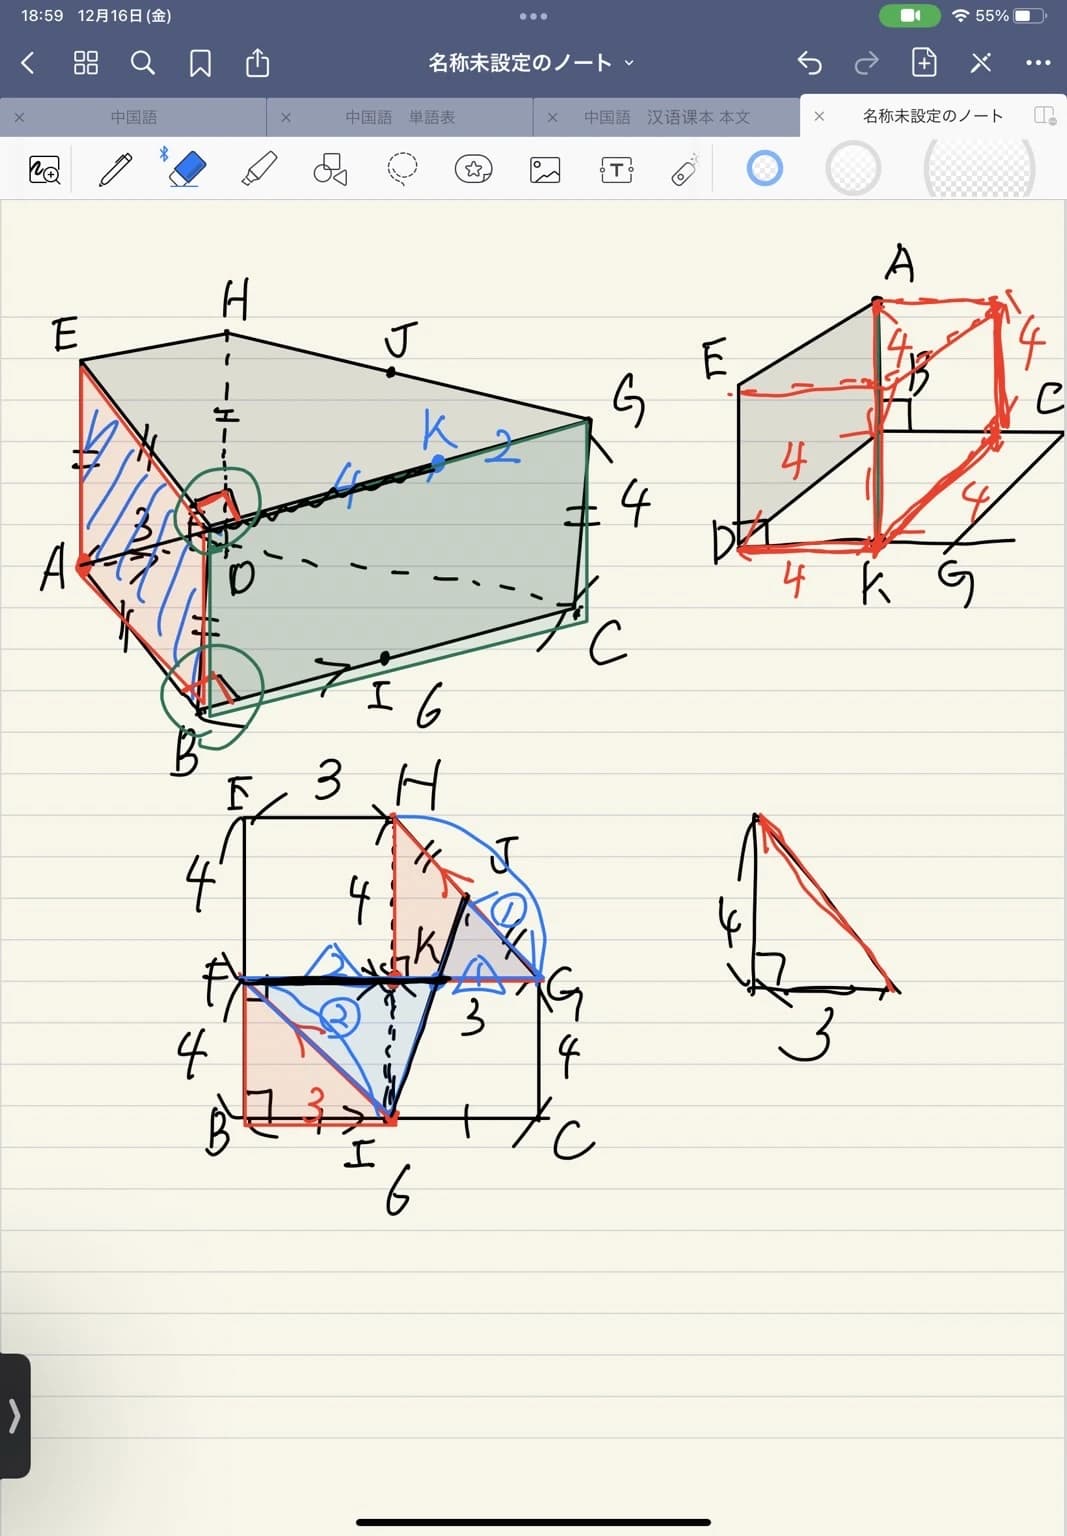 18:59 12月16日(金)
55%
名称未設定のノート
中国語
中国語 単語表
中国語 汉语课本 本文
名称未設定のノート
T
H
E
J
G
K
2
4
4
3
A
D
C
I 6
B
A
4
4
E
B
C
4
4
D
4
K
G
E 3 H
4
4
J
①
K
F
2
1
G
②
3
4
4
B
3
I
C
6
4
3